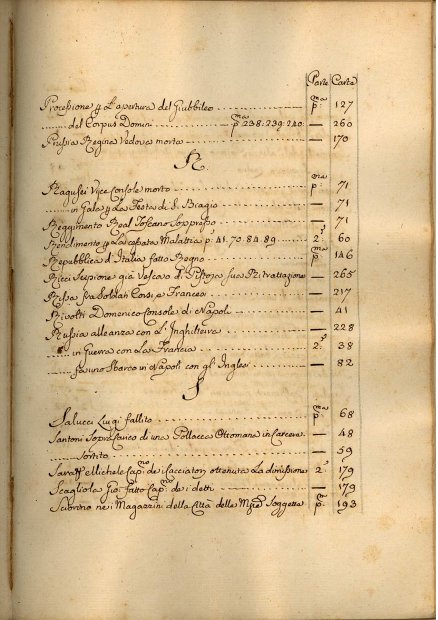 Parte Carte
Processione p L'apertura del Giubbileo p.ma 127
del Corpus Domini p.ma 238. 239. 240. — 260
Prussia Regina Vedova morta — 170
R.
Ragusei Vice Console morto p. 71
in Gala p La Festa di S. Biagio — 71
Reggimento Real Toscano Soppresso — 71
Rendimento p La p.a 41. 70. 84. 89 2.a 60
Repubblica d'Italia fatto Regno p.ma 146
Ricci Scipione già Vescovo di Pistoja sua Ritrattazione — 265
Rissa fra Soldati Corsi e Francesi — 217
Rivolti Domenico Console di Napoli — 41
Russia alleanza con L'Inghilterra — 228
in Guerra con La Francia 2.a 38
fa uno Sbarco in Napoli con gl'Inglesi — 82
S
Salucci Luigi fallito p.ma 68
Santoni Sopracarico di una Pollacca Ottomana in Carcere — 48
Sortito — 59
Michele Cap.no de Cacciatori ottenuta La dimissione 2.a 179
Scagliola Gio: fatto Cap.no de i detti — 179
nei Magazzini della Città delle Soggette p.ma 193